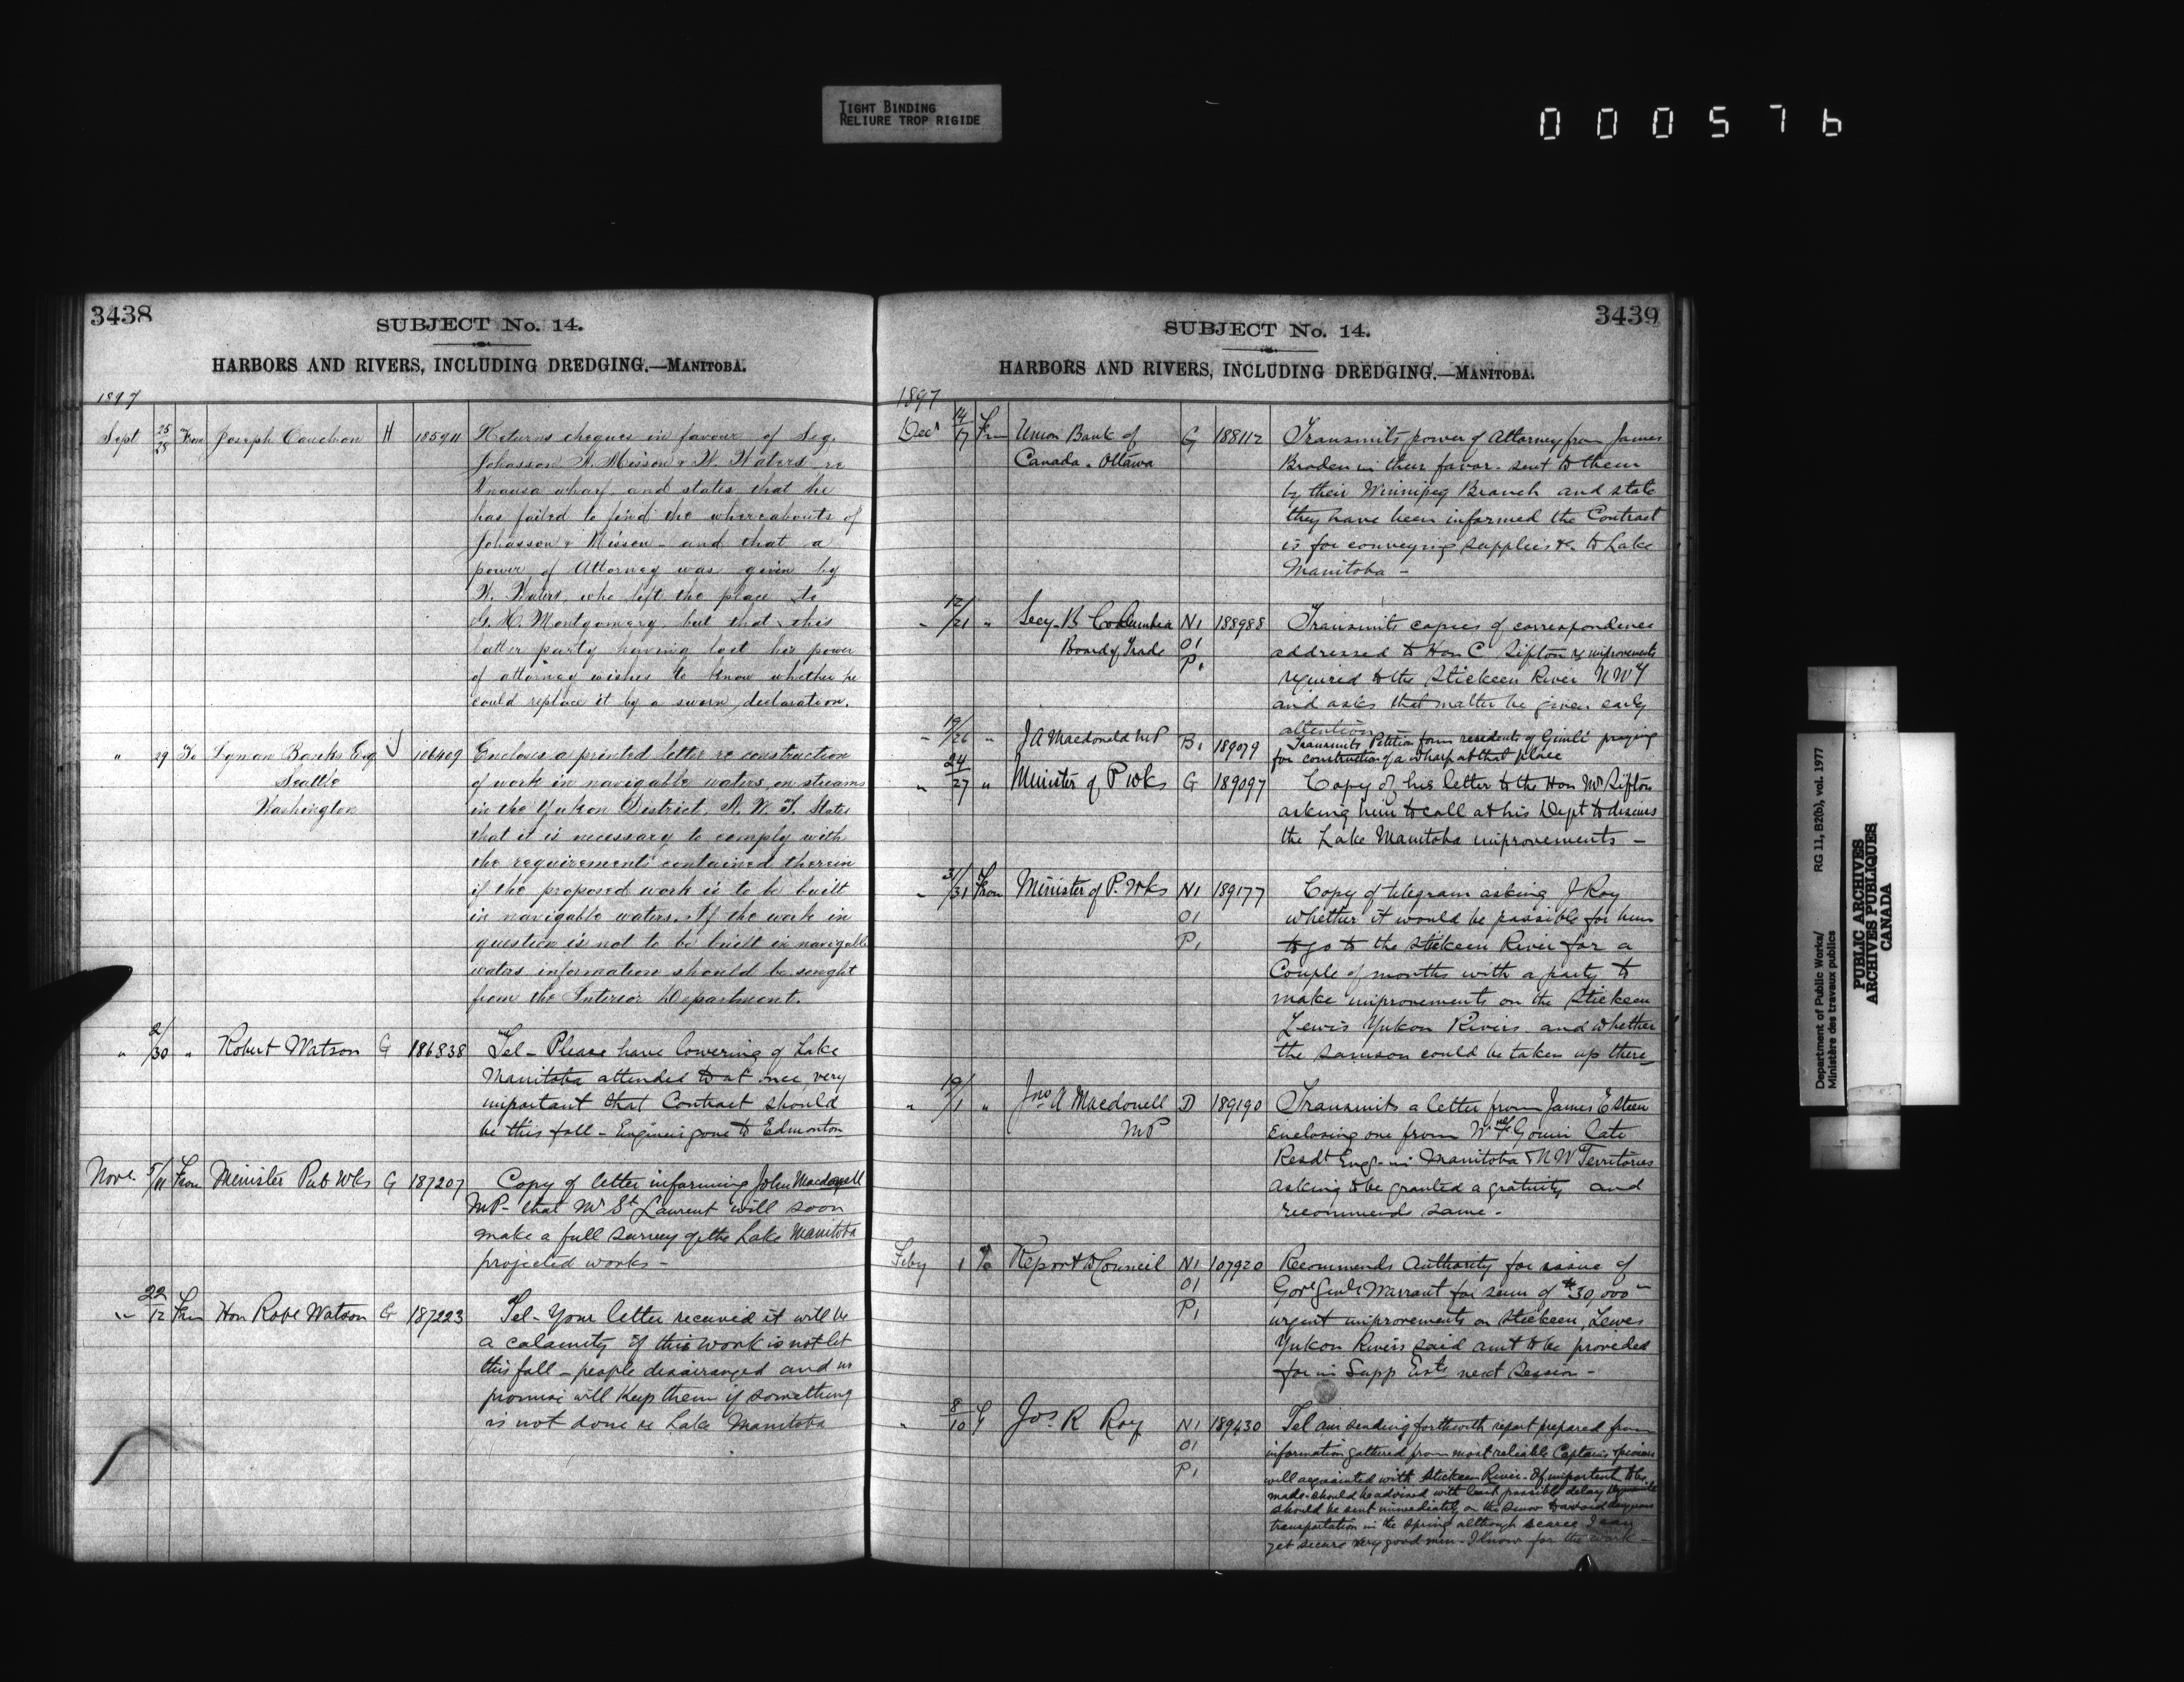 TIGHT BINDING
RELIURE TROP RIGIDE
000576
3438
SUBJECT No. 14.
HARBORS AND RIVERS, INCLUDING DREDGING.—MANITOBA.
1897
Sept 25/28 From Joseph Cauchon H 185911 Returns cheques in favour of Sig.
Johasson N. Nisson & W. Waters re
Hnausa wharf and states that he
has failed to find the whereabouts of
Johasson & Nisson - and that a
power of Attorney was given by
W. Waters, who left the place to
G. H. Montgomery, but that this
latter party having lost his power
of attorney wishes to know whether he
could replace it by a sworn declaration.
" 29 To Lyman Banks Esq J 106409 Encloses a printed letter re construction
Seattle of work in navigable waters, on streams
Washington in the Yukon District, N. W. T. States
that it is necessary to comply with
the requirements contained therein
if the proposed work is to be built
in navigable waters. If the work in
question is not to be built in navigable
waters information should be sought
from the Interior Department.
" 2/30 " Robert Watson G 186838 Tel - Please have lowering of Lake
Manitoba attended to at once, very
important that Contract should
be this fall - Engineer gone to Edmonton
Nove. 5/11 From Minister Pub Wks G 187207 Copy of letter informing John Macdonell
MP - that Mr St Laurent will soon
make a full survey of the Lake Manitoba
projected works -
" 22/12 From Hon Robt Watson G 187223 Tel - Your letter received it will be
a calamity if this work is not let
this fall - people disarranged and no
promise will keep them if something
is not done re Lake Manitoba
3439
SUBJECT No. 14.
HARBORS AND RIVERS, INCLUDING DREDGING.—MANITOBA.
1897
Decr 14/17 From Union Bank of G 188112 Transmits power of Attorney from James
Canada. Ottawa Braden in their favor - sent to them
by their Winnipeg Branch and state
they have been informed the Contract
is for conveying supplies &c. to Lake
Manitoba -
" 12/21 " Secy - B Columbia N1 188988 Transmits copies of correspondence
Board of Trade O1 addressed to Hon C. Sifton re improvements
P1 required to the Stickeen River NWT
and asks that matter be given early
attention
" 19/26 " J A Macdonald MP B1 189079 Transmits Petition from residents of Gimli praying
for construction of a wharf at that place
" 24/27 " Minister of P Wks G 189097 Copy of his letter to the Hon Mr Sifton
asking him to call at his Dept to discuss
the Lake Manitoba improvements -
" 31/31 From Minister of P. Wks N1 189177 Copy of telegram asking J Roy
O1 whether it would be possible for him
P1 to go to the Stickeen River for a
Couple of months with a party to
make improvements on the Stickeen
Lewis Yukon Rivers and whether
the Samson could be taken up there -
" 19/1 " Jno A Macdonell D 189190 Transmits a letter from James E Steen
MP Enclosing one from W T Gouin late
Resdt Engr - in Manitoba & NW Territories
asking to be granted a gratuity and
recommends same -
Feby 1 To Report to Council N1 107920 Recommends Authority for issue of
O1 Govr Genls Warrant for sum of $30,000
P1 urgent improvements on Stickeen, Lewes
Yukon Rivers said amt to be provided
for in Supp Ests next Session -
" 8/10 F Jos. R Roy N1 189430 Tel am sending forthwith report prepared from
O1 information gathered from most reliable Captains &
P1 well acquainted with Stickeen River - If important to be
made - should be advised with least possible delay
should be sent immediately on the snow to avoid dangerous
transportation in the spring although scarce I can
yet secure very good men - I know for the work -
Department of Public Works/
Ministère des travaux publics
RG 11, B2(b), vol. 1977
PUBLIC ARCHIVES
ARCHIVES PUBLIQUES
CANADA